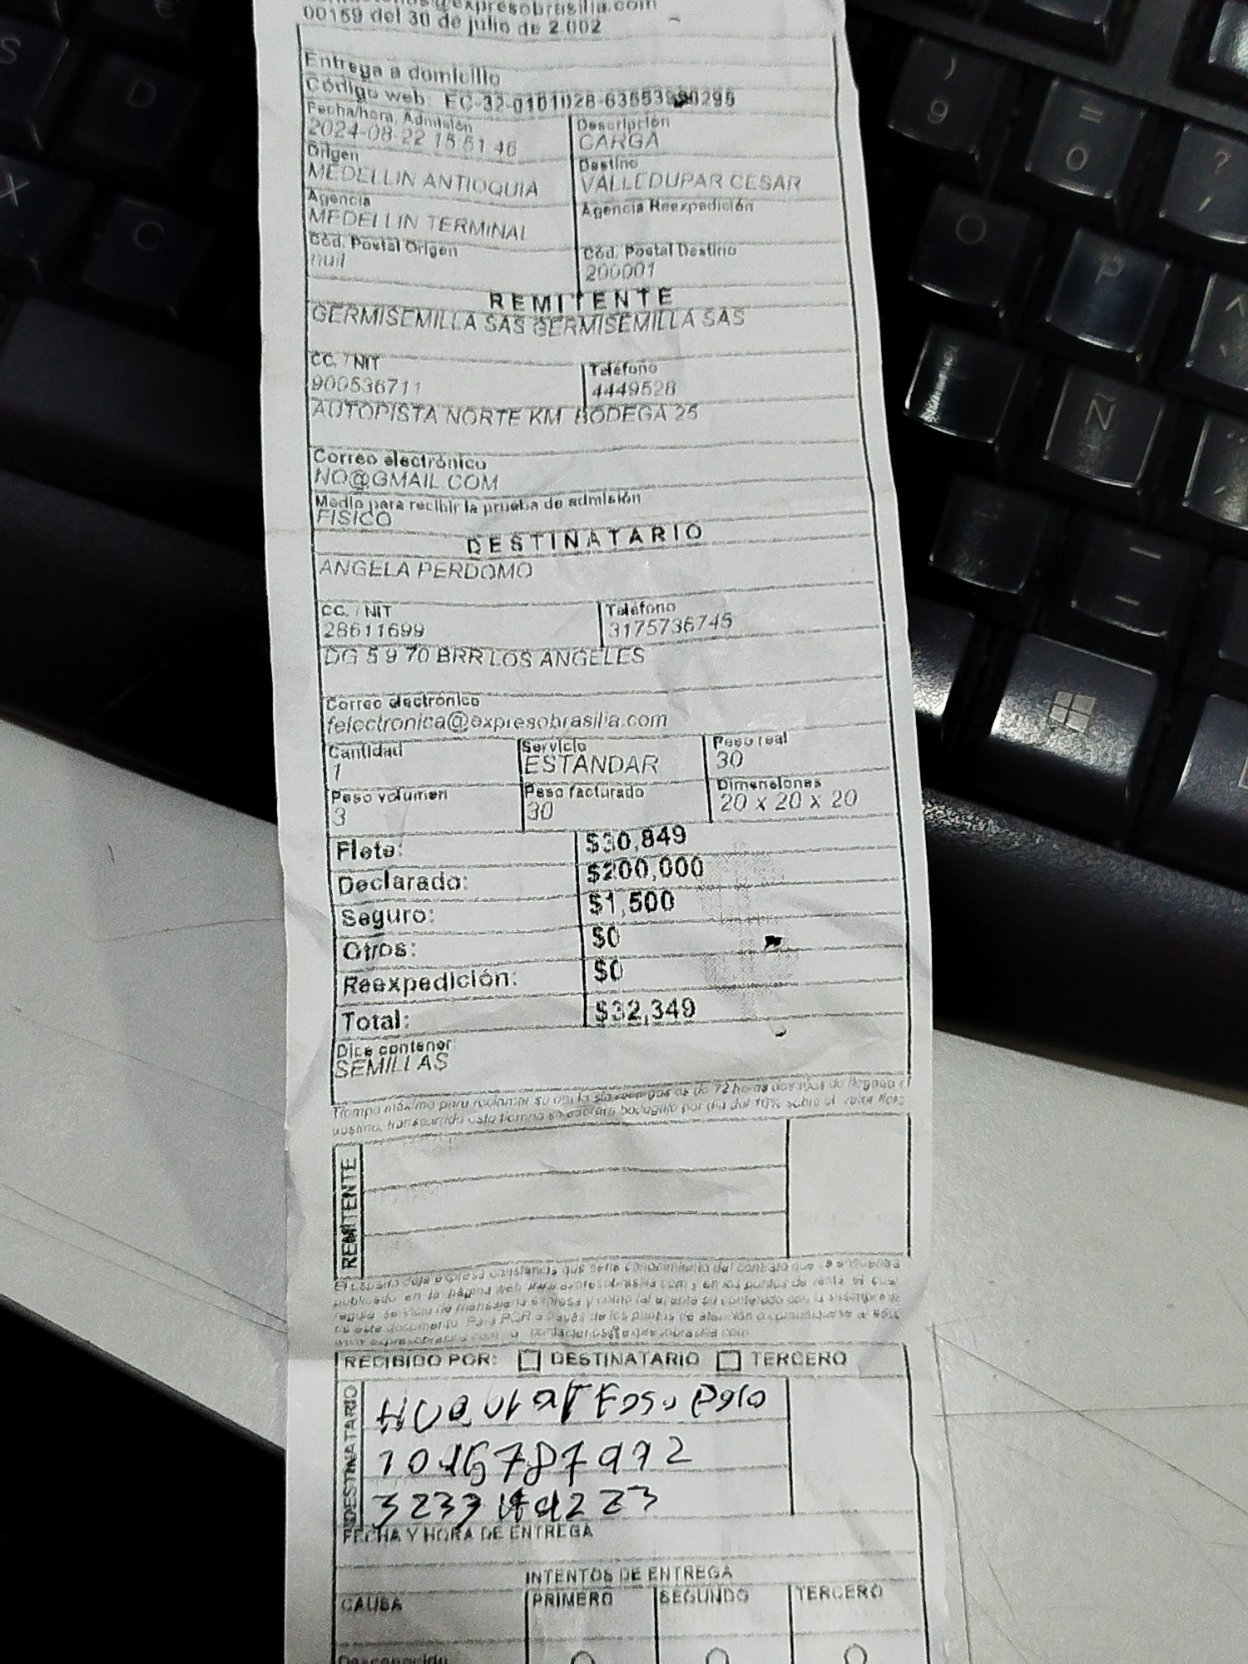 @expresobrasilia.com
00159 del 30 de julio de 2.002
Entrega a domicilio
Código web EC-32-0101028-63553
0295
Fecha/hora, Admisión
2024-08-22 15 51 46
Descripción
CARGA
Origen
MEDELLIN ANTIOQUIA
Destino
VALLEDUPAR CESAR
Agencia
MEDELLIN TERMINAL
Agencia Reexpedición
Cód. Postal Origen
null
Cód. Postal Destino
200001
REMITENTE
GERMISEMILLA SAS GERMISEMILLA SAS
CC. / NIT
900536711
Teléfono
4449528
AUTOPISTA NORTE KM BODEGA 25
Correo electrónico
NO@GMAIL.COM
Medio para recibir la prueba de admisión
FISICO
DESTINATARIO
ANGELA PERDOMO
CC. / NIT
28611699
Teléfono
3175736745
DG 5 9 70 BRR LOS ANGELES
Correo electrónico
felectronica@expresobrasilia.com
Cantidad
1
Servicio
ESTANDAR
Peso real
30
Peso volumen
3
Peso facturado
30
Dimensiones
20 x 20 x 20
Flete: $30,849
Declarado: $200,000
Seguro: $1,500
Otros: $0
Reexpedición: $0
Total: $32,349
Dice contener
SEMILLAS
Tiempo máximo para reclamar su de 72 horas de llegada
destino, transcurrido este tiempo se cobrará bodegaje por día del 10% sobre el valor flete
REMITENTE
El usuario deja expresa constancia que tiene conocimiento del contrato que se encuentra
publicado en la página web www.expresobrasilia.com y en los puntos de venta
de este documento. Para PQR a través de los puntos de atención
www.expresobrasilia.com
RECIBIDO POR: DESTINATARIO TERCERO
DESTINATARIO
3233
FECHA Y HORA DE ENTREGA
INTENTOS DE ENTREGA
CAUSA PRIMERO SEGUNDO TERCERO
Desconocido